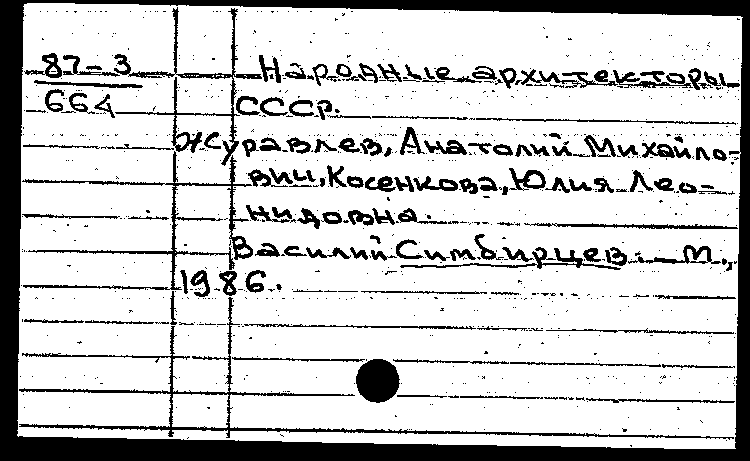 87-3 Народные архитекторы
664 СССР.
Журавлев, Анатолий Михайло-
вич, Косенкова, Юлия Лео-
нидовна.
Василий Симбирцев. – М.,
1986.